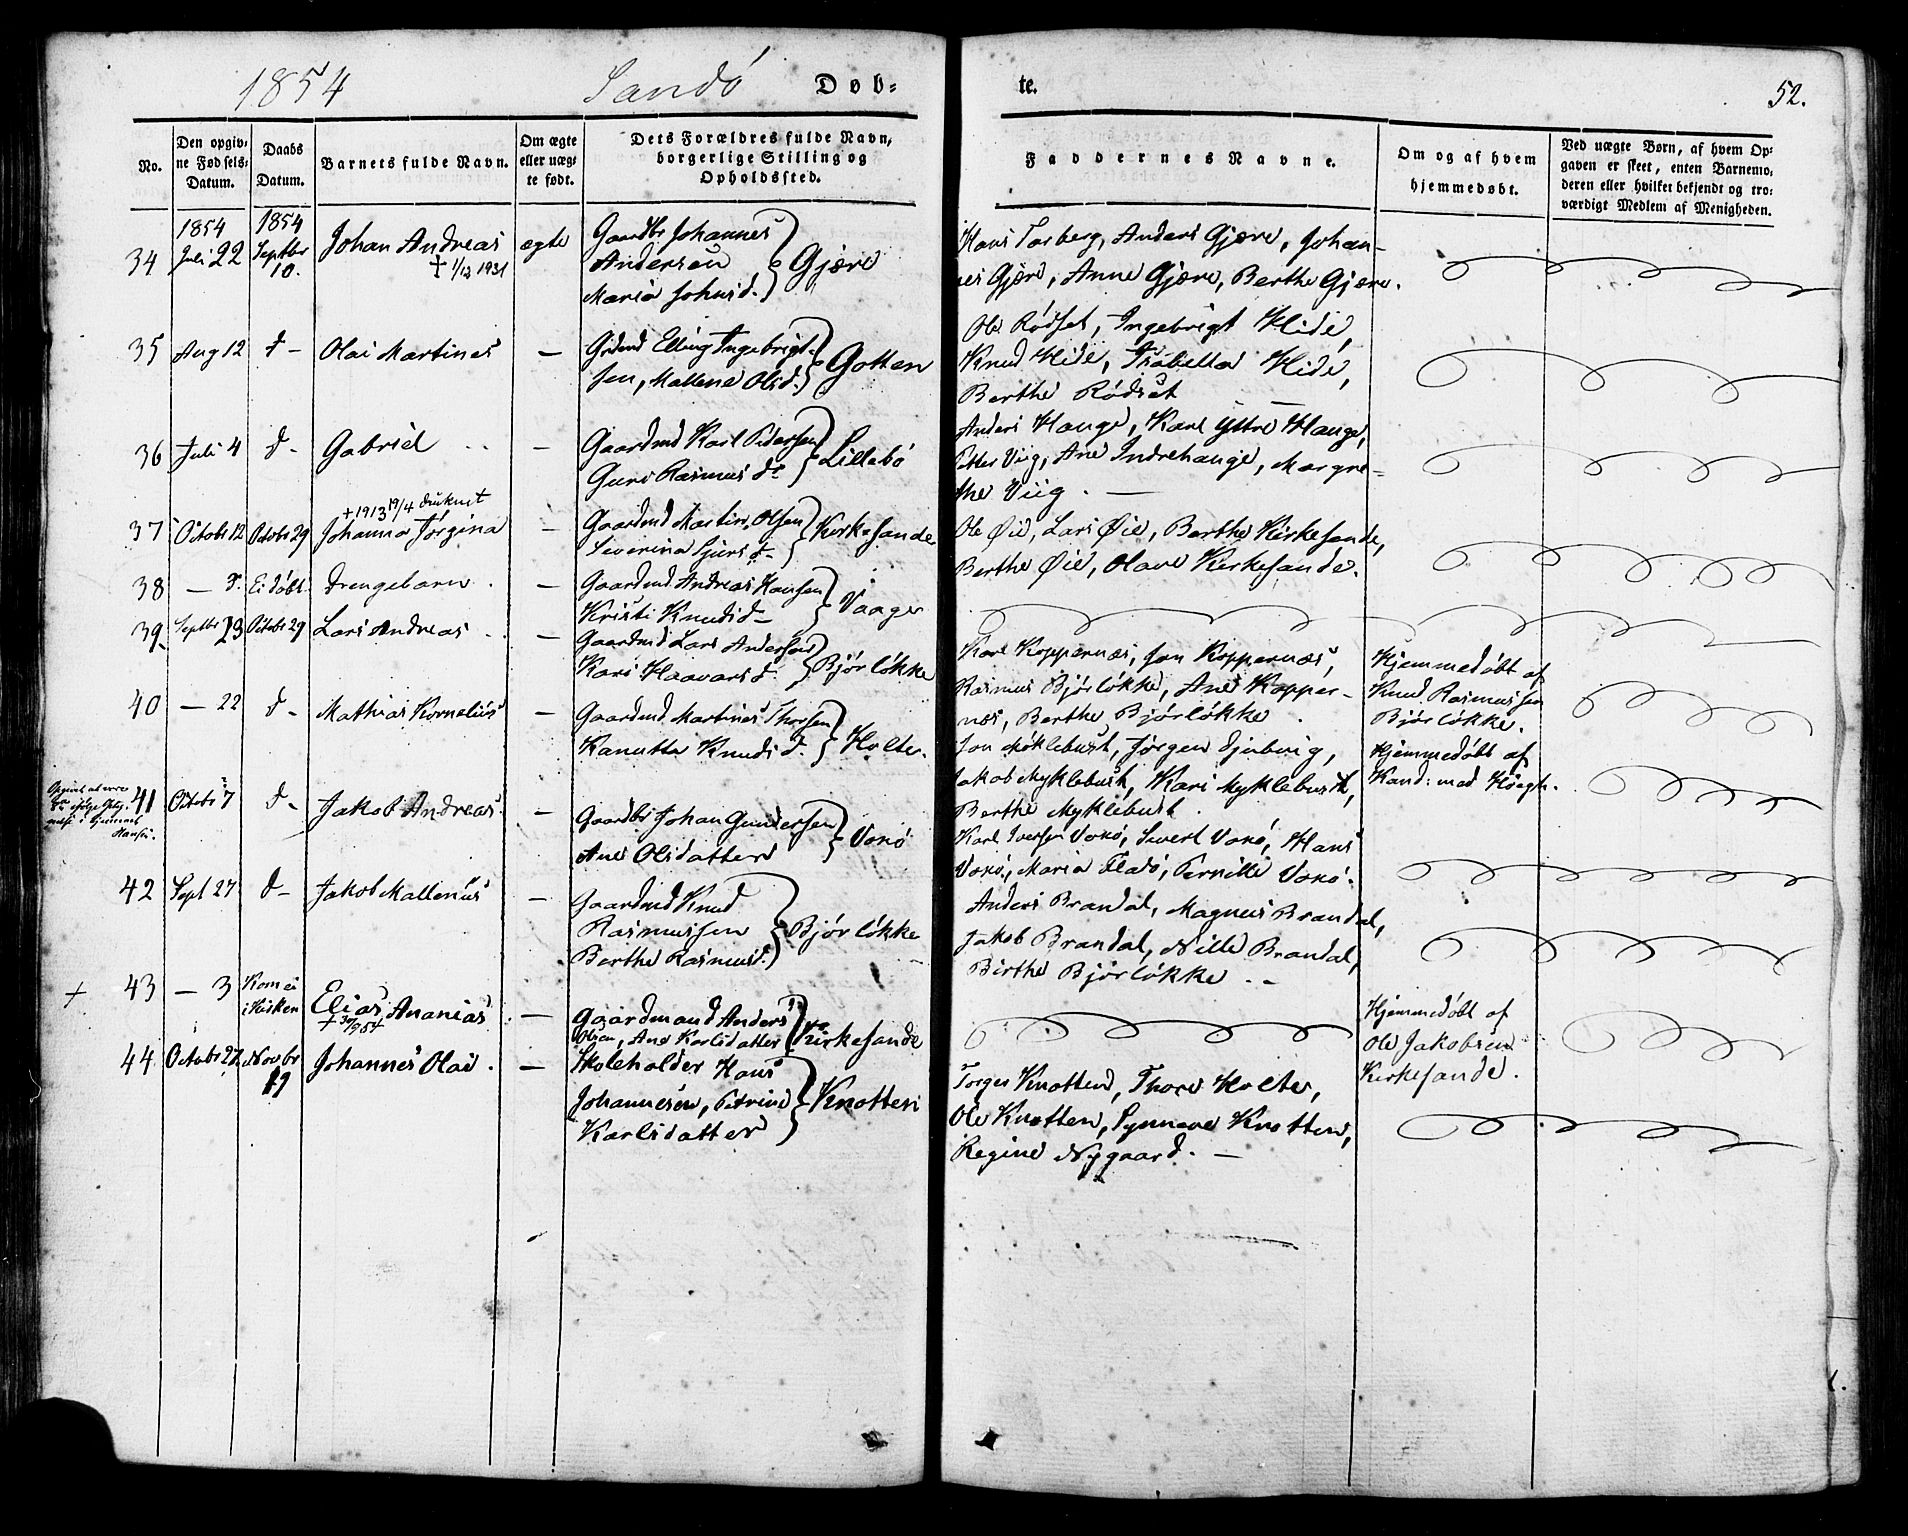 1854 Sandö Døb-
te. 52.
No.
Den opgiv-
ne Fødsels-
Datum.
Daabs
Datum.
Barnets fulde Navn.
Om ægte
eller uæg-
te født.
Dets Forældres fulde Navn,
borgerlige Stilling og
Opholdssted.
Faddernes Navne.
Om og af hvem
hjemmedøbt.
Ved uægte Børn, af hvem Op-
gaven er skeet, enten Barnemo-
deren eller hvilket bekjendt og tro-
værdigt Medlem af Menigheden.
34
1854
Juli 22
1854
Septbr
10.
Johan Andreas
† 1/12 1931
ægte
Gaardbr Johannes
Andersen
Maria Johnsd. } Gjære
Hans Torberg, Anders Gjære, Johan-
nes Gjære, Anne Gjære, Berthe Gjære.
35 Aug 12 d- Olai Martines —
Elling Ingebrigt-
sen, Mallene Olsd. } Gotten
Ole Rødset, Ingebrigt Hide,
Knud Hide, Isabella Hide,
Berthe Rødset
36 Juli 4 d- Gabriel —
Gaardmd Karl Pedersen
Guro Rasmusdr } Lillebö
Anders Hauge, Karl Yttre Hauge,
Petter Viig, Ane Indrehauge, Margre-
the Viig. —
37 Octobr 12 Octobr 29
+ 1913 19/4 druknet
Johanna Jørgina —
Gaardmd Martin Olsen
Severina Sjursd— } Kirkesande
Ole Øie, Lars Øie, Berthe Kirkesande,
Berthe Øie, Olave Kirkesande.
38 — d. Ei döbt. Drengebarn. —
Gaardmd. Andreas Hansen
Kristi Knudsd— } Vaage
39. Septbr 23 Octobr 29 Lars Andreas —
Gaardmd Lars Andersen
Kari Haavarsd. } Bjørlökke
Karl Koppernæs, Jon Koppernæs,
Rasmus Bjørlökke, Ane Kopper-
næs, Berthe Bjørlökke.
Hjemmedöbt af
Knud Rasmussen
Bjørlökke.
40 — 22 d- Mathias Kornelius —
Gaardmd. Martines Thorsen
Kanutta Knudsd. } Holte.
Jon Möklebust, Jørgen Djubvig,
Jakob Myklebust, Kari Myklebust,
Berthe Myklebust.
Hjemmedöbt af
Kand: med Höegh.
41 Octobr 7 d- Jakob Andreas. —
Gaardbr Johan Gundersen
Ane Olsdatter } Voxö
Karl Iversen Voxö, Sivert Voxö, Hans
Voxö, Maria Fladö, Pernille Voxö.
42 Sept 27 d- Jakob Mallenus —
Gaardmd Knud
Rasmussen
Berthe Rasmusd. } Bjørlökke
Anders Brandal, Magnus Brandal,
Jakob Brandal, Nille Brandal,
Birthe Bjørlökke. -
+ 43 — 3
Kom ei
i Kirken
Elias Ananias —
+ 30/9 54
Gaardmand Anders
Olsen, Ane Karlsdatter } Kirkesande
Hjemmedöbt af
Ole Jakobsen
Kirkesande.
44 Octobr 22 Novbr
19
Johannes Olai. —
Skoleholder Hans
Johannesen, Petrine
Karlsdatter } Knotten
Torger Knotten, Thore Holte,
Ole Knotten, Synneve Knotten,
Regine Nygaard. —